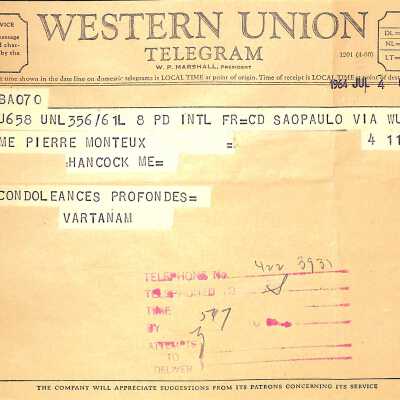 WESTERN UNION
TELEGRAM
W. P. MARSHALL, PRESIDENT
1201 (4-60)
SERVICE
message
d char-
by the
DL=
NL=
LT=
time shown in the date line on domestic telegrams is LOCAL TIME at point of origin. Time of receipt is LOCAL TIME at point of destination
1964 JUL 4
BA070
U658 UNL356/61L 8 PD INTL FR=CD SAOPAULO VIA WU
ME PIERRE MONTEUX = 4 11
HANCOCK ME=
CONDOLEANCES PROFONDES=
VARTANAM
TELEPHONE No. 422 3931
TELEPHONED TO
TIME
BY
ATTEMPTS
TO
DELIVER
THE COMPANY WILL APPRECIATE SUGGESTIONS FROM ITS PATRONS CONCERNING ITS SERVICE